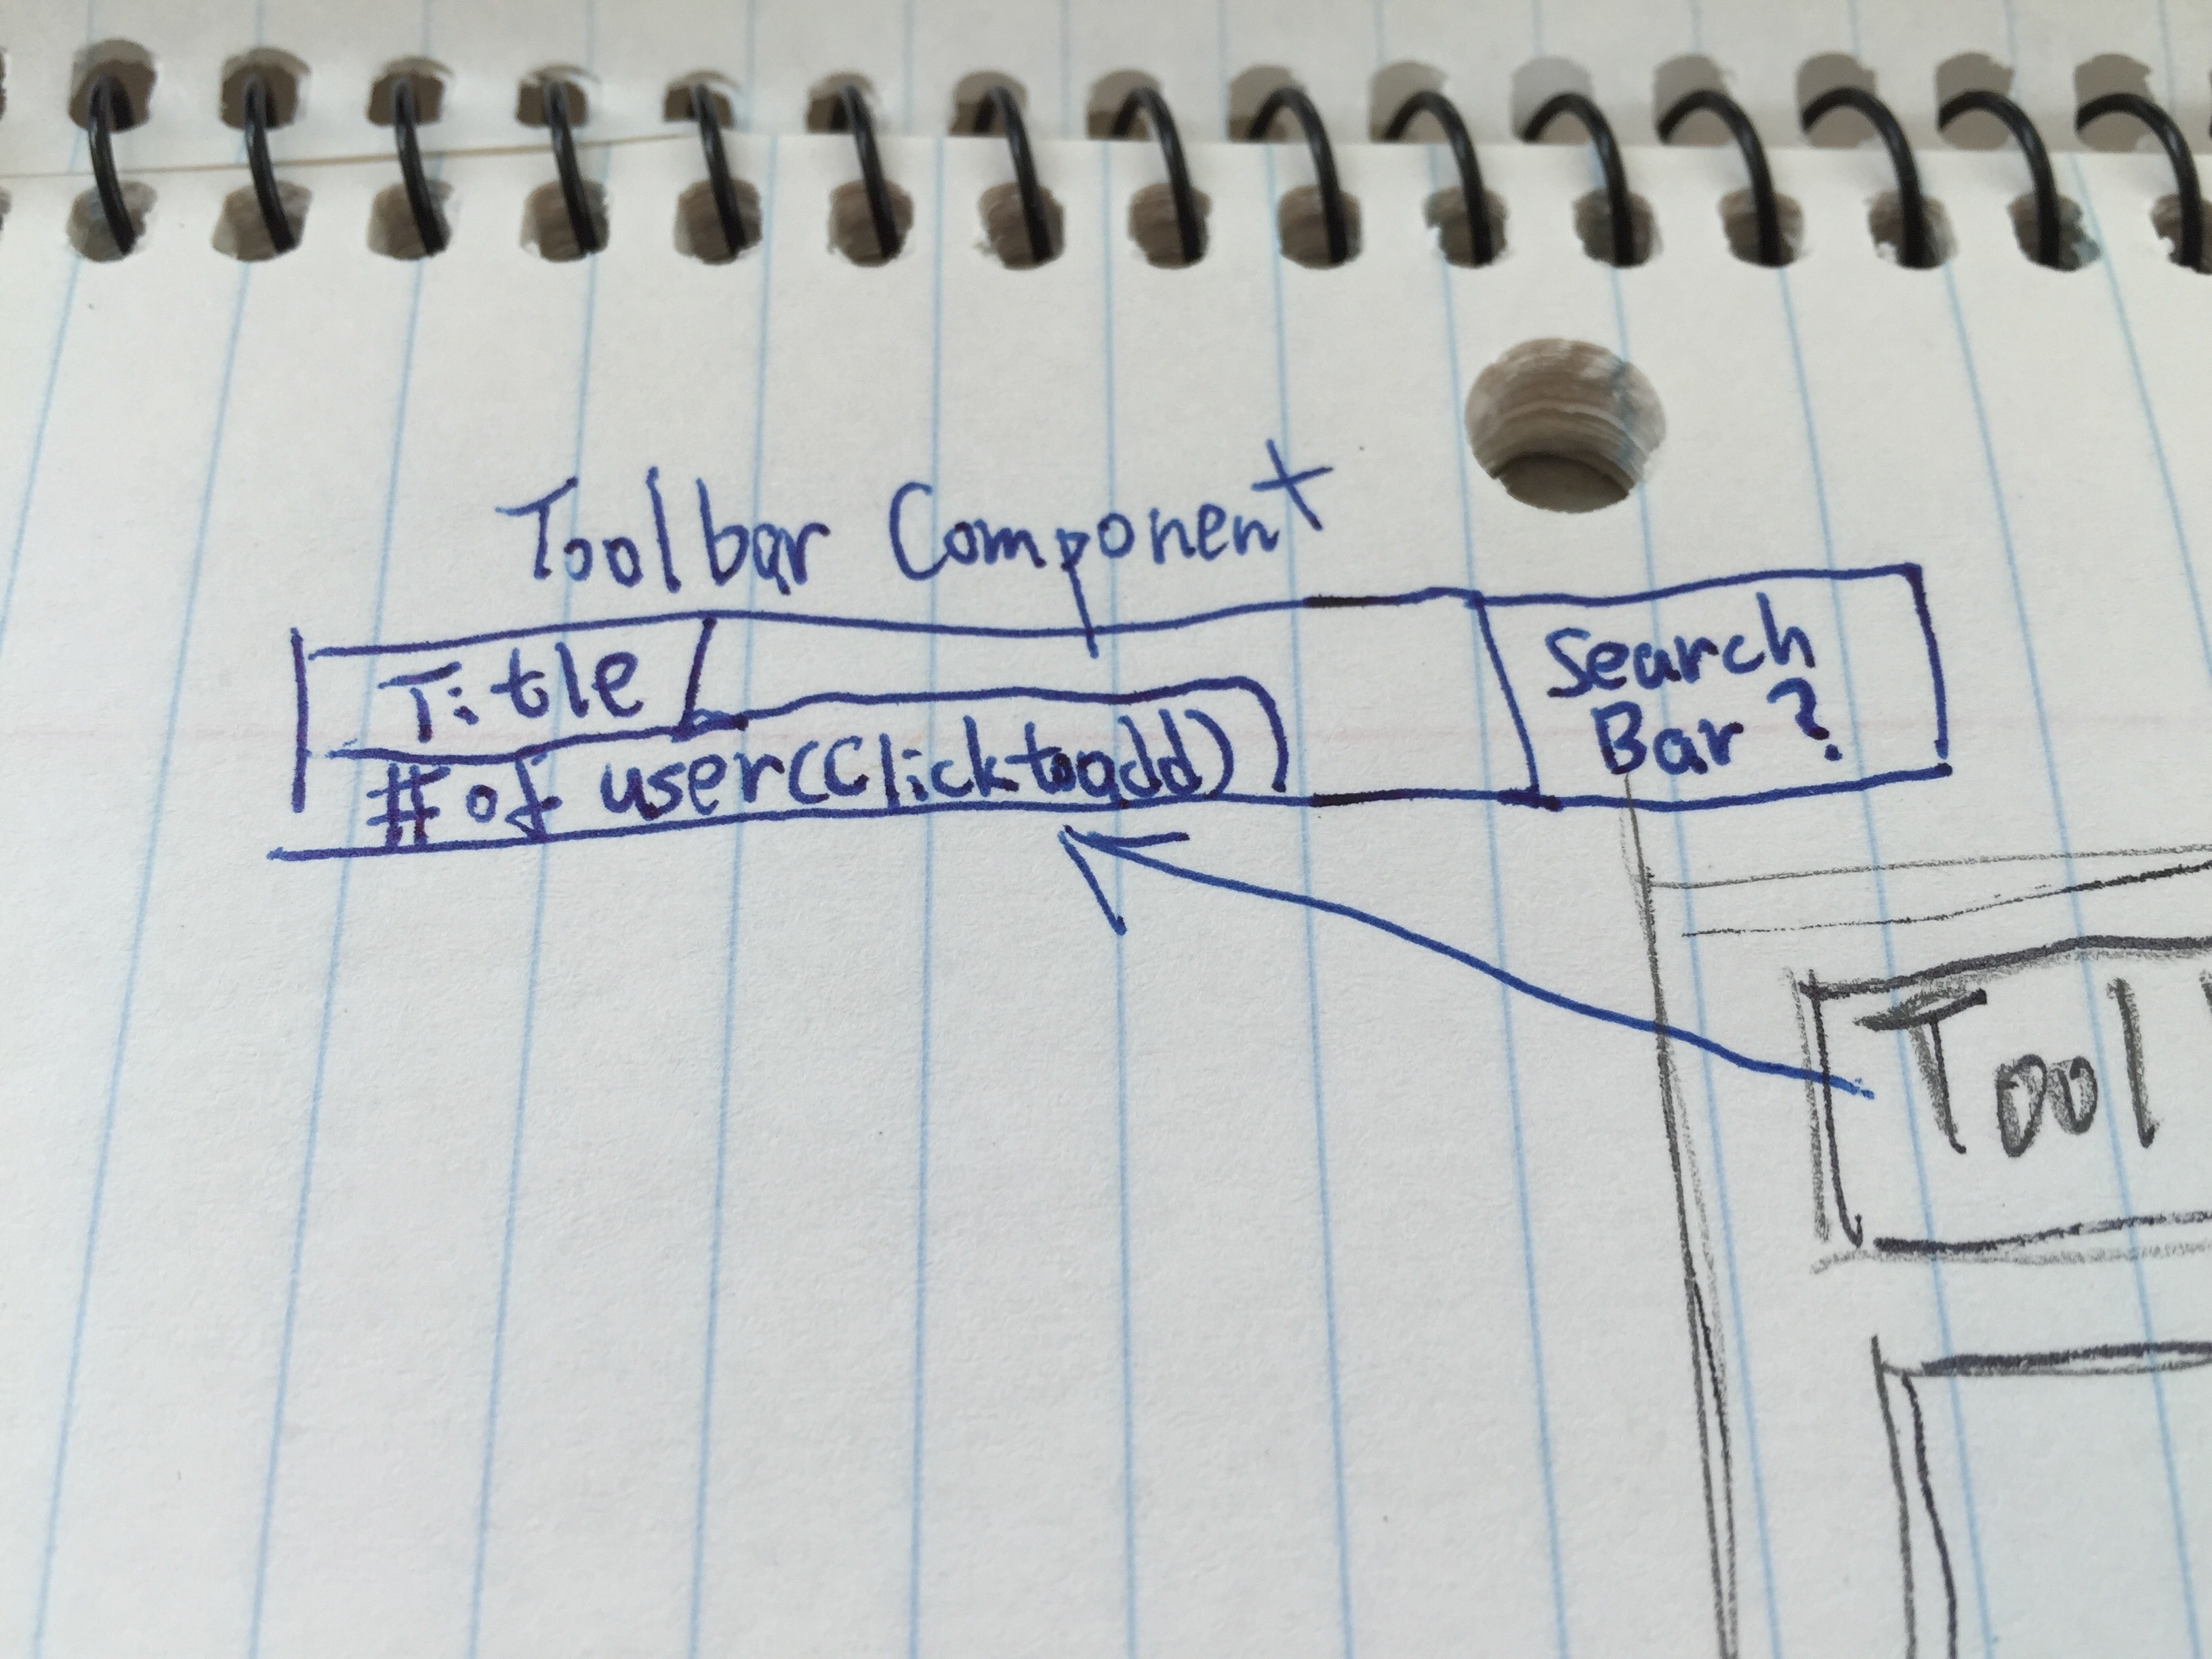 Toolbar Component
Title
# of user(Click to add)
Search
Bar?
Tool